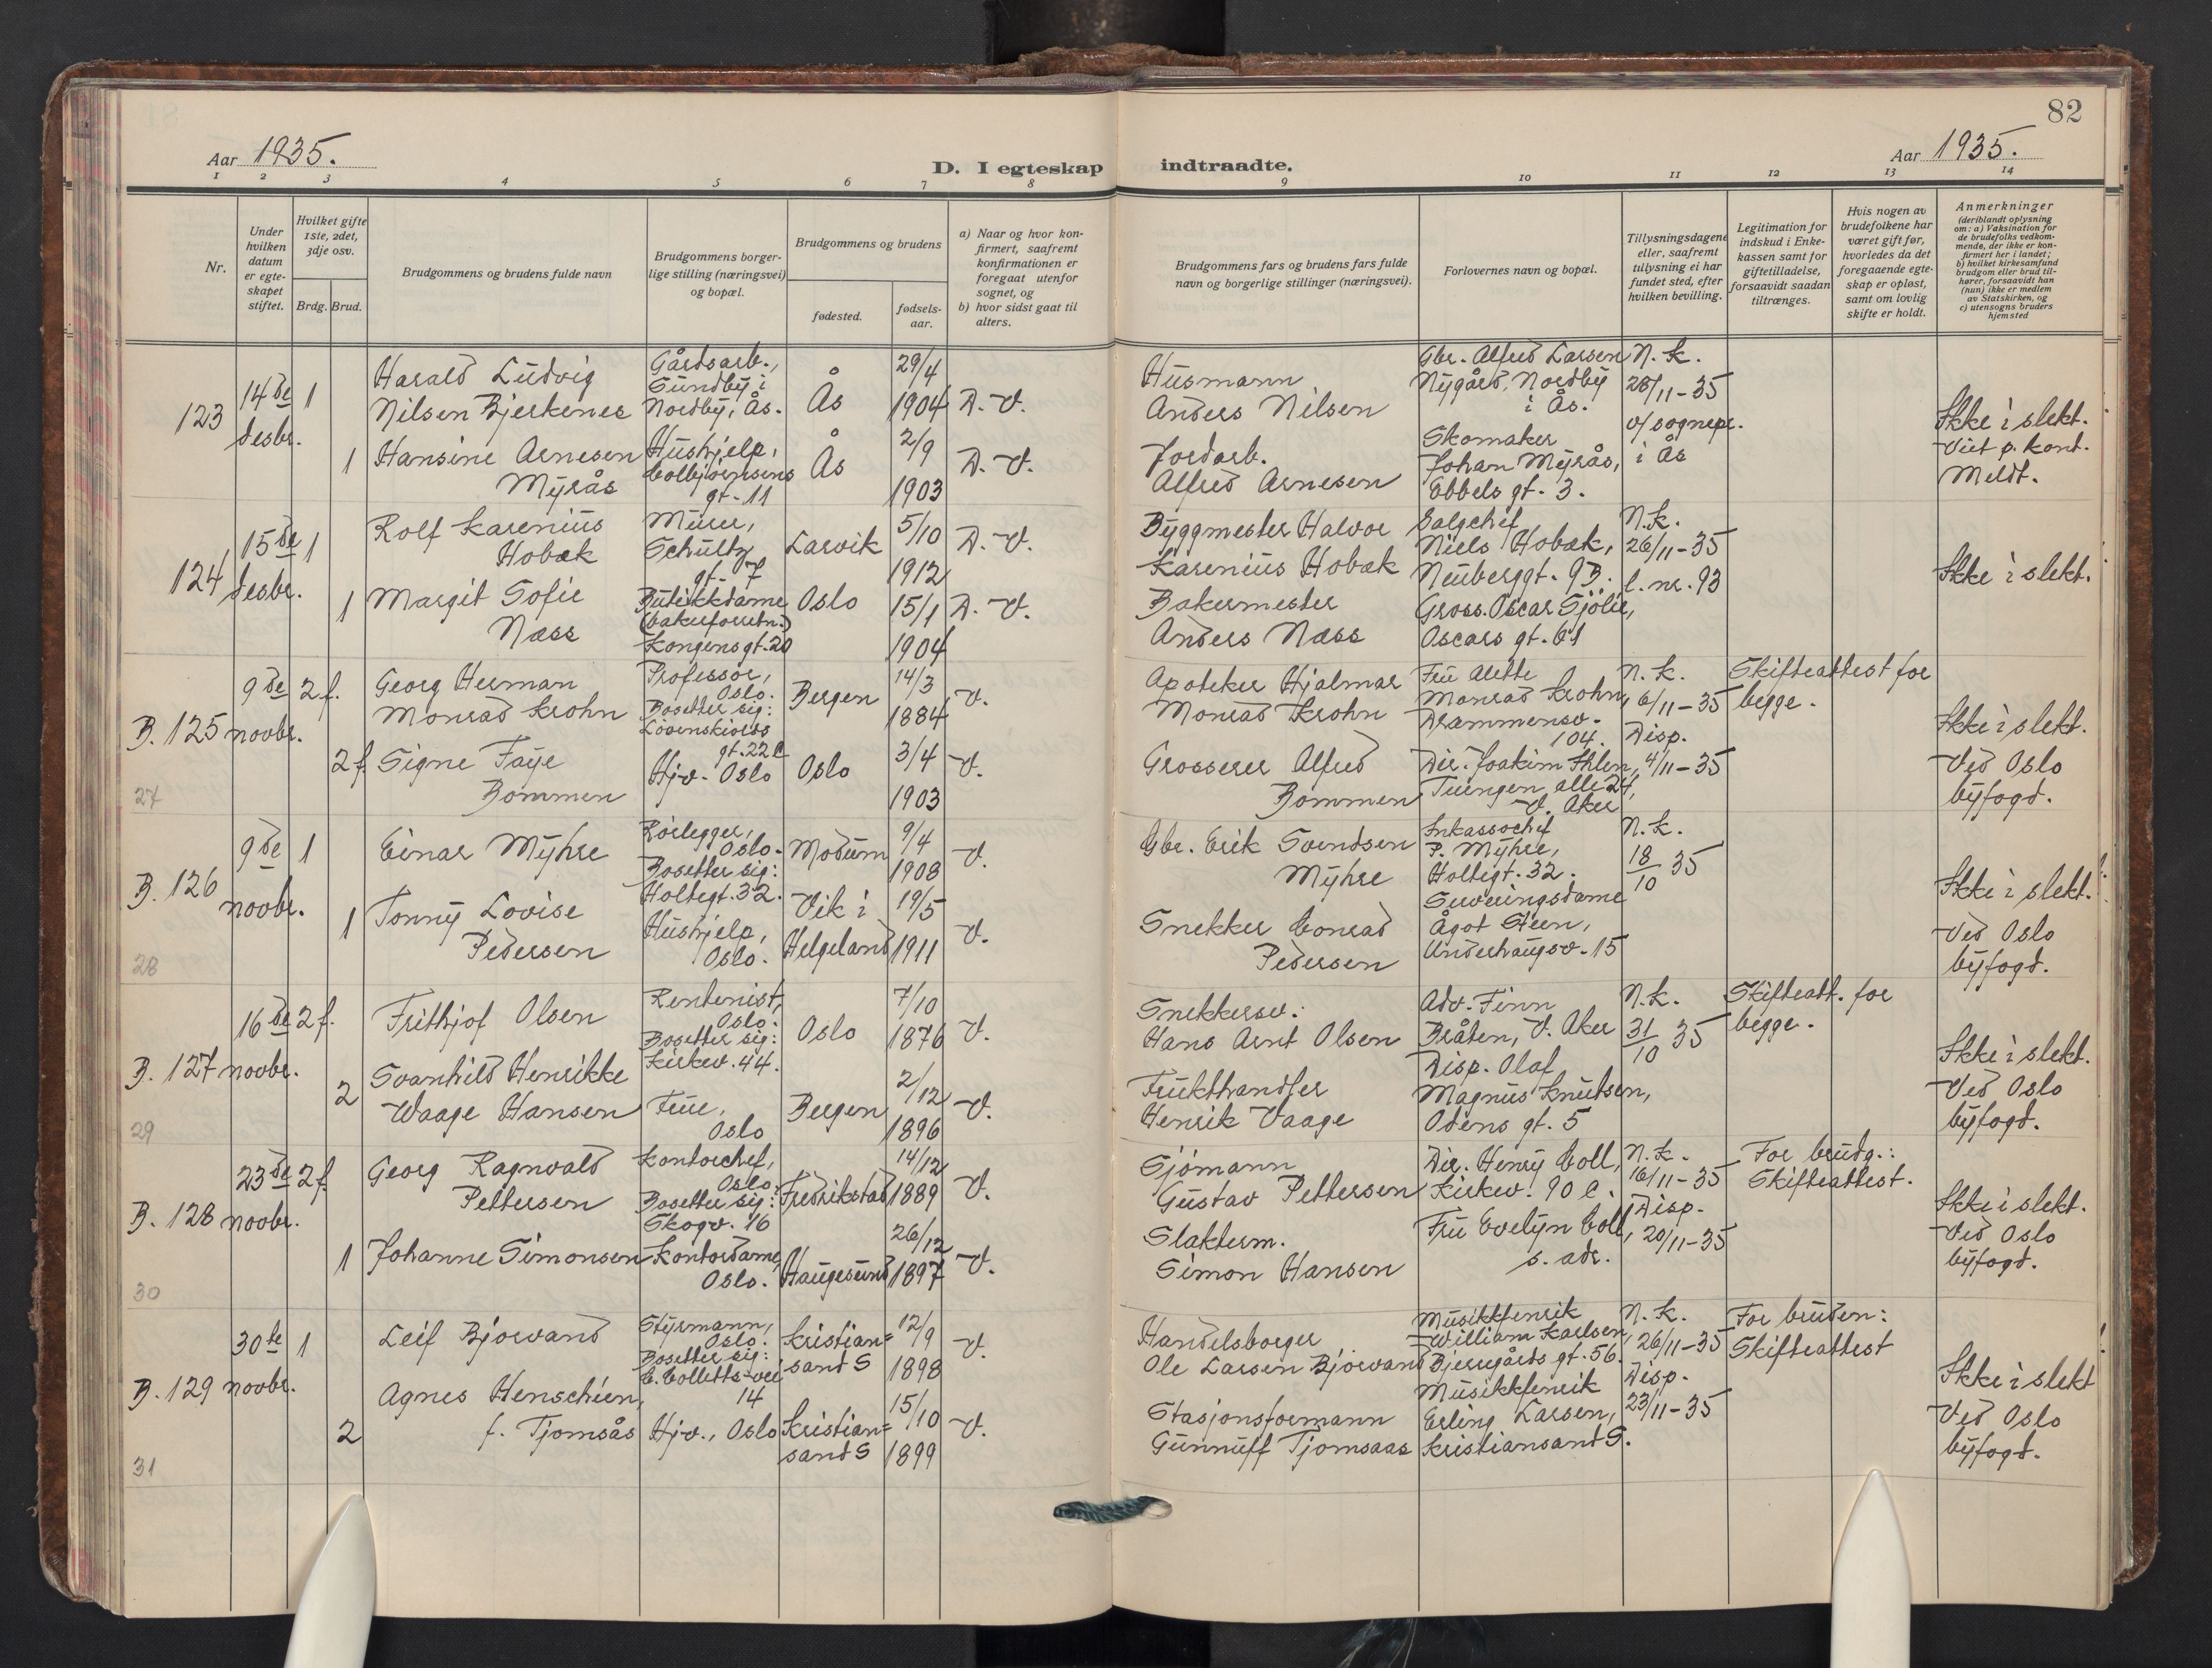 82
Aar 1935.
D. I egteskap indtraadte.
Aar 1935.
1 2 3 4 5 6 7 8 9 10 11 12 13 14
Nr.
Under hvilken datum er egteskapet stiftet.
Hvilket gifte 1ste, 2det, 3dje osv.
Brdg. Brud.
Brudgommens og brudens fulde navn
Brudgommens borgerlige stilling (næringsvei) og bopæl.
Brudgommens og brudens
fødested.
fødselsaar.
a) Naar og hvor konfirmert, saafremt konfirmationen er foregaat utenfor sognet, og
b) hvor sidst gaat til alters.
Brudgommens fars og brudens fars fulde navn og borgerlige stillinger (næringsvei).
Forlovernes navn og bopæl.
Tillysningsdagene eller, saafremt tillysning ei har fundet sted, efter hvilken bevilling.
Legitimation for indskud i Enkekassen samt for giftetilladelse, forsaavidt saadan tiltrænges.
Hvis nogen av brudefolkene har været gift før, hvorledes da det foregaaende egteskap er opløst, samt om lovlig skifte er holdt.
Anmerkninger
(deriblandt oplysning om: a) Vaksination for de brudefolks vedkommende, der ikke er konfirmert her i landet; b) hvilket kirkesamfund brudgom eller brud tilhører, forsaavidt han (hun) ikke er medlem av Statskirken, og c) utensogns bruders hjemsted
123
14de desbr.
1
Harald Ludvig
Nilsen Bjerkenes
Gårdsarb.,
Sundby i
Nordby, Ås.
Ås
29/4
1904
D. V.
Husmann
Anders Nilsen
Gbr. Alfred Larsen
Nygård, Nordby
i Ås.
N. k.
28/11-35
v/ sognepr.
i Ås
Ikke i slekt.
Viet p. kont.
Meldt.
1
Hansine Arnesen
Myrås
Hushjelp,
Colbjørnsens
gt. 11
Ås
2/9
1903
D. V.
Jordarb.
Alfred Arnesen
Skomaker
Johan Myrås,
Ebbels gt. 3.
124
15de desbr.
1
Rolf Karenius
Hobæk
Murer,
Schultz
gt. 7
Larvik
5/10
1912
D. V.
Byggmester Halvor
Karenius Hobæk
Salgchef
Niels Hobæk,
Neuberggt. 9B.
N. k.
26/11-35
l. nr. 93
Ikke i slekt.
1
Margit Sofie
Næss
Butikkdame
(bakerforretn.)
Kongensgt. 20
Oslo
15/1
1904
D. V.
Bakermester
Anders Næss
Gross. Oscar Sjølie,
Oscars gt. 61
B. 125
9de novbr.
2 f.
Georg Herman
Monrad Krohn
Professor,
Oslo.
Bosetter sig:
Løvenskiolds
gt. 22 C
Bergen
14/3
1884
V.
Apoteker Hjalmar
Monrad Krohn
Fru Alette
Monrad Krohn,
Drammensv.
104.
N. k.
6/11-35
Disp.
4/11-35
Skifteattest for
begge.
Ikke i slekt.
Ved Oslo
byfogd.
2 f.
Signe Faye
Bommen
Hjv. Oslo
Oslo
3/4
1903
V.
Grosserer Alfred
Bommen
Dir. Joakim Ihlen,
Tuengen allé 24,
V. Aker
27
B. 126
9de novbr.
1
Einar Myhre
Rørlegger,
Oslo.
Bosetter sig:
Holtegt. 32.
Modum
9/4
1908
V.
Gbr. Erik Svendsen
Myhre
Inkassochef
P. Myhre,
Holtegt. 32.
N. k.
18/10 35
Ikke i slekt.
Ved Oslo
byfogd.
1
Tonny Lovise
Pedersen
Hushjelp,
Oslo.
Vik i
Helgeland
19/5
1911
V.
Snekker Conrad
Pedersen
Serveringsdame
Ågot Steen,
Underhaugsv. 15
28
B. 127
16de novbr.
2 f.
Frithjof Olsen
Rentenist,
Oslo.
Bosetter sig:
Kirkev. 44.
Oslo
7/10
1876
V.
Snekkersv.
Hans Arnt Olsen
Adv. Finn
Bråten, V. Aker
N. k.
31/10 35
Skifteatt. for
begge.
Ikke i slekt.
Ved Oslo
byfogd.
2
Svanhild Henrikke
Waage Hansen
Frue,
Oslo
Bergen
2/12
1896
V.
Frukthandler
Henrik Vaage
Disp. Olaf
Magnus Knutsen,
Odens gt. 5
29
B. 128
23de novbr.
2 f.
Georg Ragnvald
Pettersen
Kontorchef,
Oslo.
Bosetter sig:
Skogv. 16
Fredrikstad
14/12
1889
V.
Sjømann
Gustav Pettersen
Dir. Henry Coll,
Kirkev. 90 C.
N. k.
16/11-35
Disp.
20/11-35
For brudg.:
Skifteattest.
Ikke i slekt.
Ved Oslo
byfogd.
1
Johanne Simonsen
Kontordame,
Oslo.
Haugesund
26/12
1897
V.
Slakterm.
Simon Hansen
Fru Evelyn Coll,
s. adr.
30
B. 129
30te novbr.
1
Leif Bjorvand
Styrmann,
Oslo.
Bosetter sig:
C. Colletts vei
14
Kristiansand S
12/9
1898
V.
Handelsborger
Ole Larsen Bjorvand
Musikkfenrik
William Karlsen,
Bjerregårds gt. 56.
N. k.
26/11-35
Disp.
23/11-35
For bruden:
Skifteattest
Ikke i slekt
Ved Oslo
byfogd.
2
Agnes Henschien,
f. Tjomsås
Hjv., Oslo
Kristiansand S
15/10
1899
V.
Stasjonsformann
Gunnuff Tjomsaas
Musikkfenrik
Erling Larsen,
Kristiansand S.
31